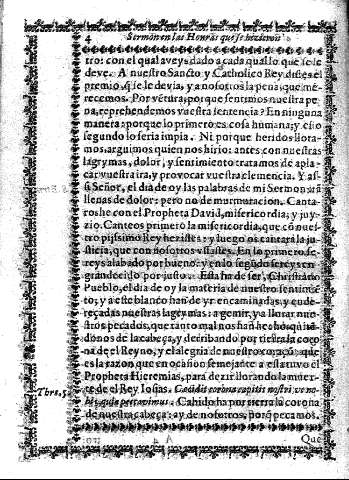 4 Sermon en las Honras que se hizieron
tro: con el qual aveys dado a cada qual lo que se le
deve. A nuestro Sancto y Catholico Rey distes el
premio, q̃ se le devia, y a nosotros la pena, que me-
recemos. Por vẽtura, porque sentimos nuestra pe
na, reprehendemos vuestra sentencia? En ninguna
manera: porque lo primero es cosa humana; y esto
segundo lo seria impia. Ni porque heridos llora-
mos, arguimos quien nos hirio: antes con nuestras
lagrymas, dolor, y sentimiento tratamos de apla-
car vuestra ira, y provocar vuestra clemencia. Y as-
si Señor, el dia de oy las palabras de mi Sermon irã
llenas de dolor: pero no de murmuracion. Canta-
ros he con el Propheta David, misericordia, y juy-
zio. Canteos primero la misericordia, que cõ nues-
tro pijssimo Rey hezistes: y luego os cantarà la ju-
sticia, que con nosotros usastes. En lo primero se-
reys alabado por bueno: y en lo segũdo sereys en-
grandecido por justo. Esta ha de ser, Christiano
Pueblo, el dia de oy la materia de nuestro sentimiẽ-
to; y a este blanco han de yr encaminadas, y ende-
reçadas nuestras lagrymas: a gemir, y a llorar nue-
stros pecados, que tanto mal nos han hecho; quitã-
donos de la cabeça, y derribando por tierra la coro
na de el Reyno, y el alegria de nuestro coraçõ: que
es la razon, que en ocasion semejante a esta tuvo el
Propheta Hieremias, para dezir llorando la muer-
Thre. 5. te de el Rey Iosias. Cecidit corona capitis nostri: ve no-
bis, quia peccavimus. Cahido ha por tierra la corona
de nuestra cabeça: ay de nosotros, porq̃ pecamos.
Que